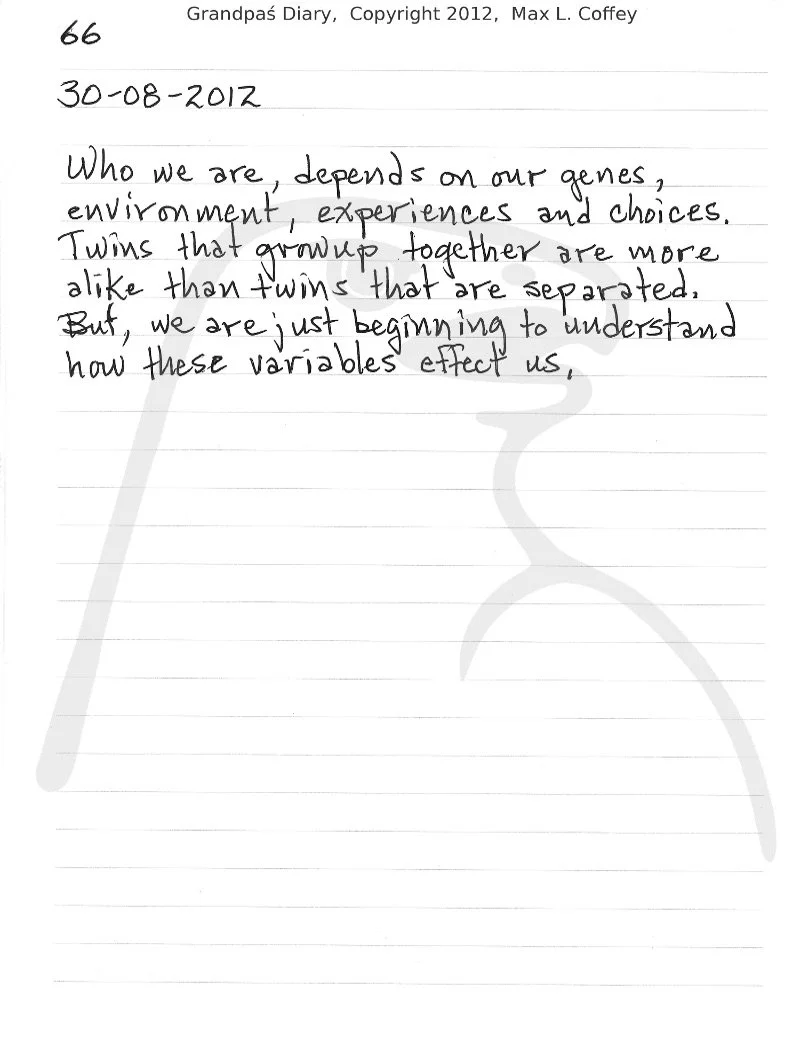 Grandpaś Diary, Copyright 2012, Max L. Coffey
66
30-08-2012
Who we are, depends on our genes,
environment, experiences and choices.
Twins that growup together are more
alike than twins that are separated.
But, we are just beginning to understand
how these variables effect us,